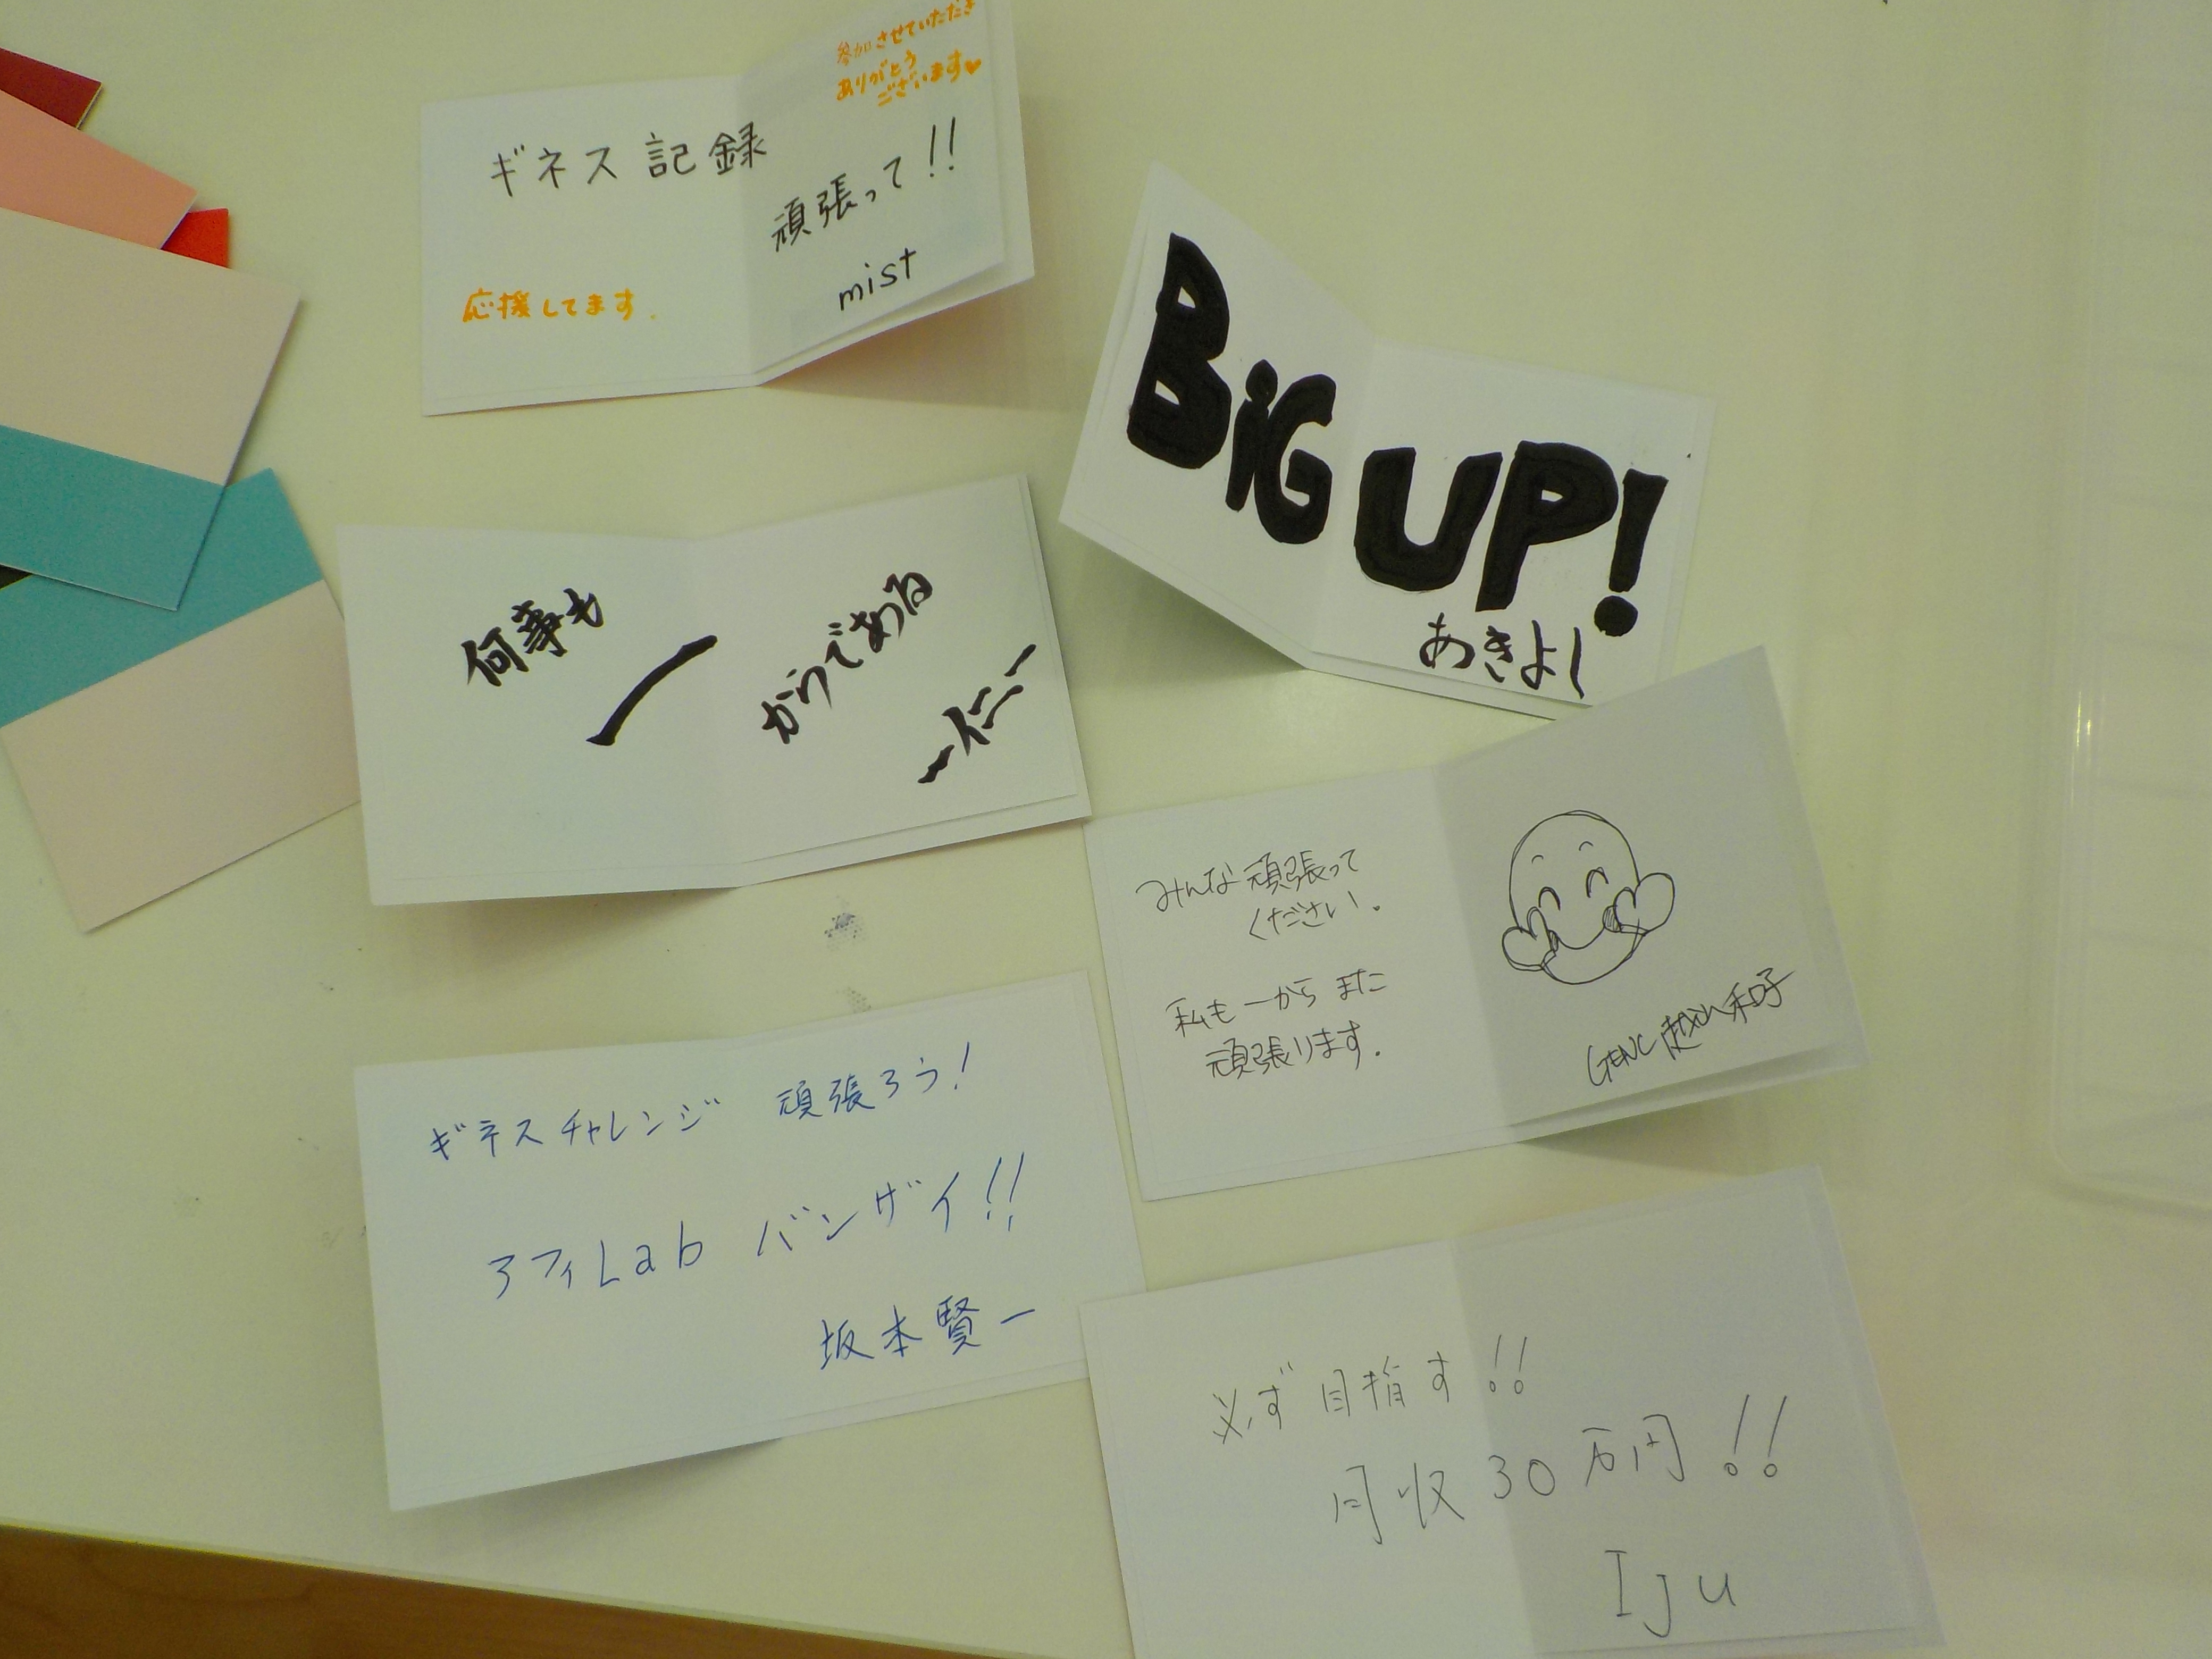 参加させていただき
ありがとう
ございます♥
ギネス記録
頑張って!!
mist
応援してます.
BiG UP!
あきよし
何事も
一
からである
一仁
みんな頑張って
ください。
私も一から また
頑張ります.
GENC 和子
ギネスチャレンジ 頑張ろう!
アフィLab バンザイ!!
坂本賢一
必ず目指す!!
月収30万円!!
Iju